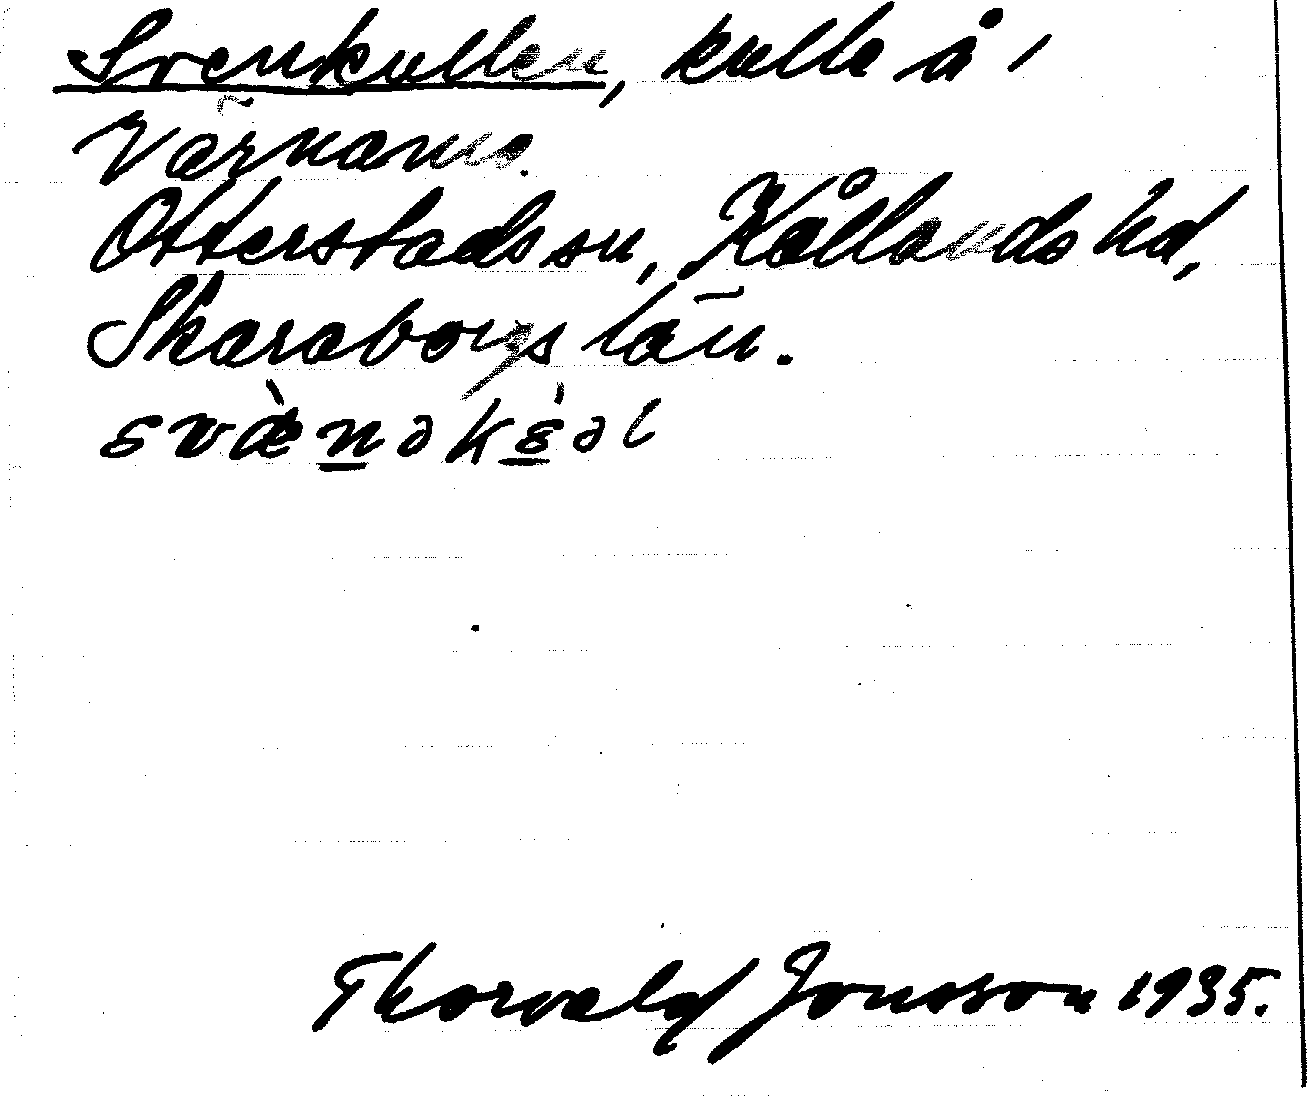 Svenkullen, kulle å i
Värnäms.
Otterstads sn, Kållands hd,
Skaraborgs län.
Thorvald Jonsson 1935.